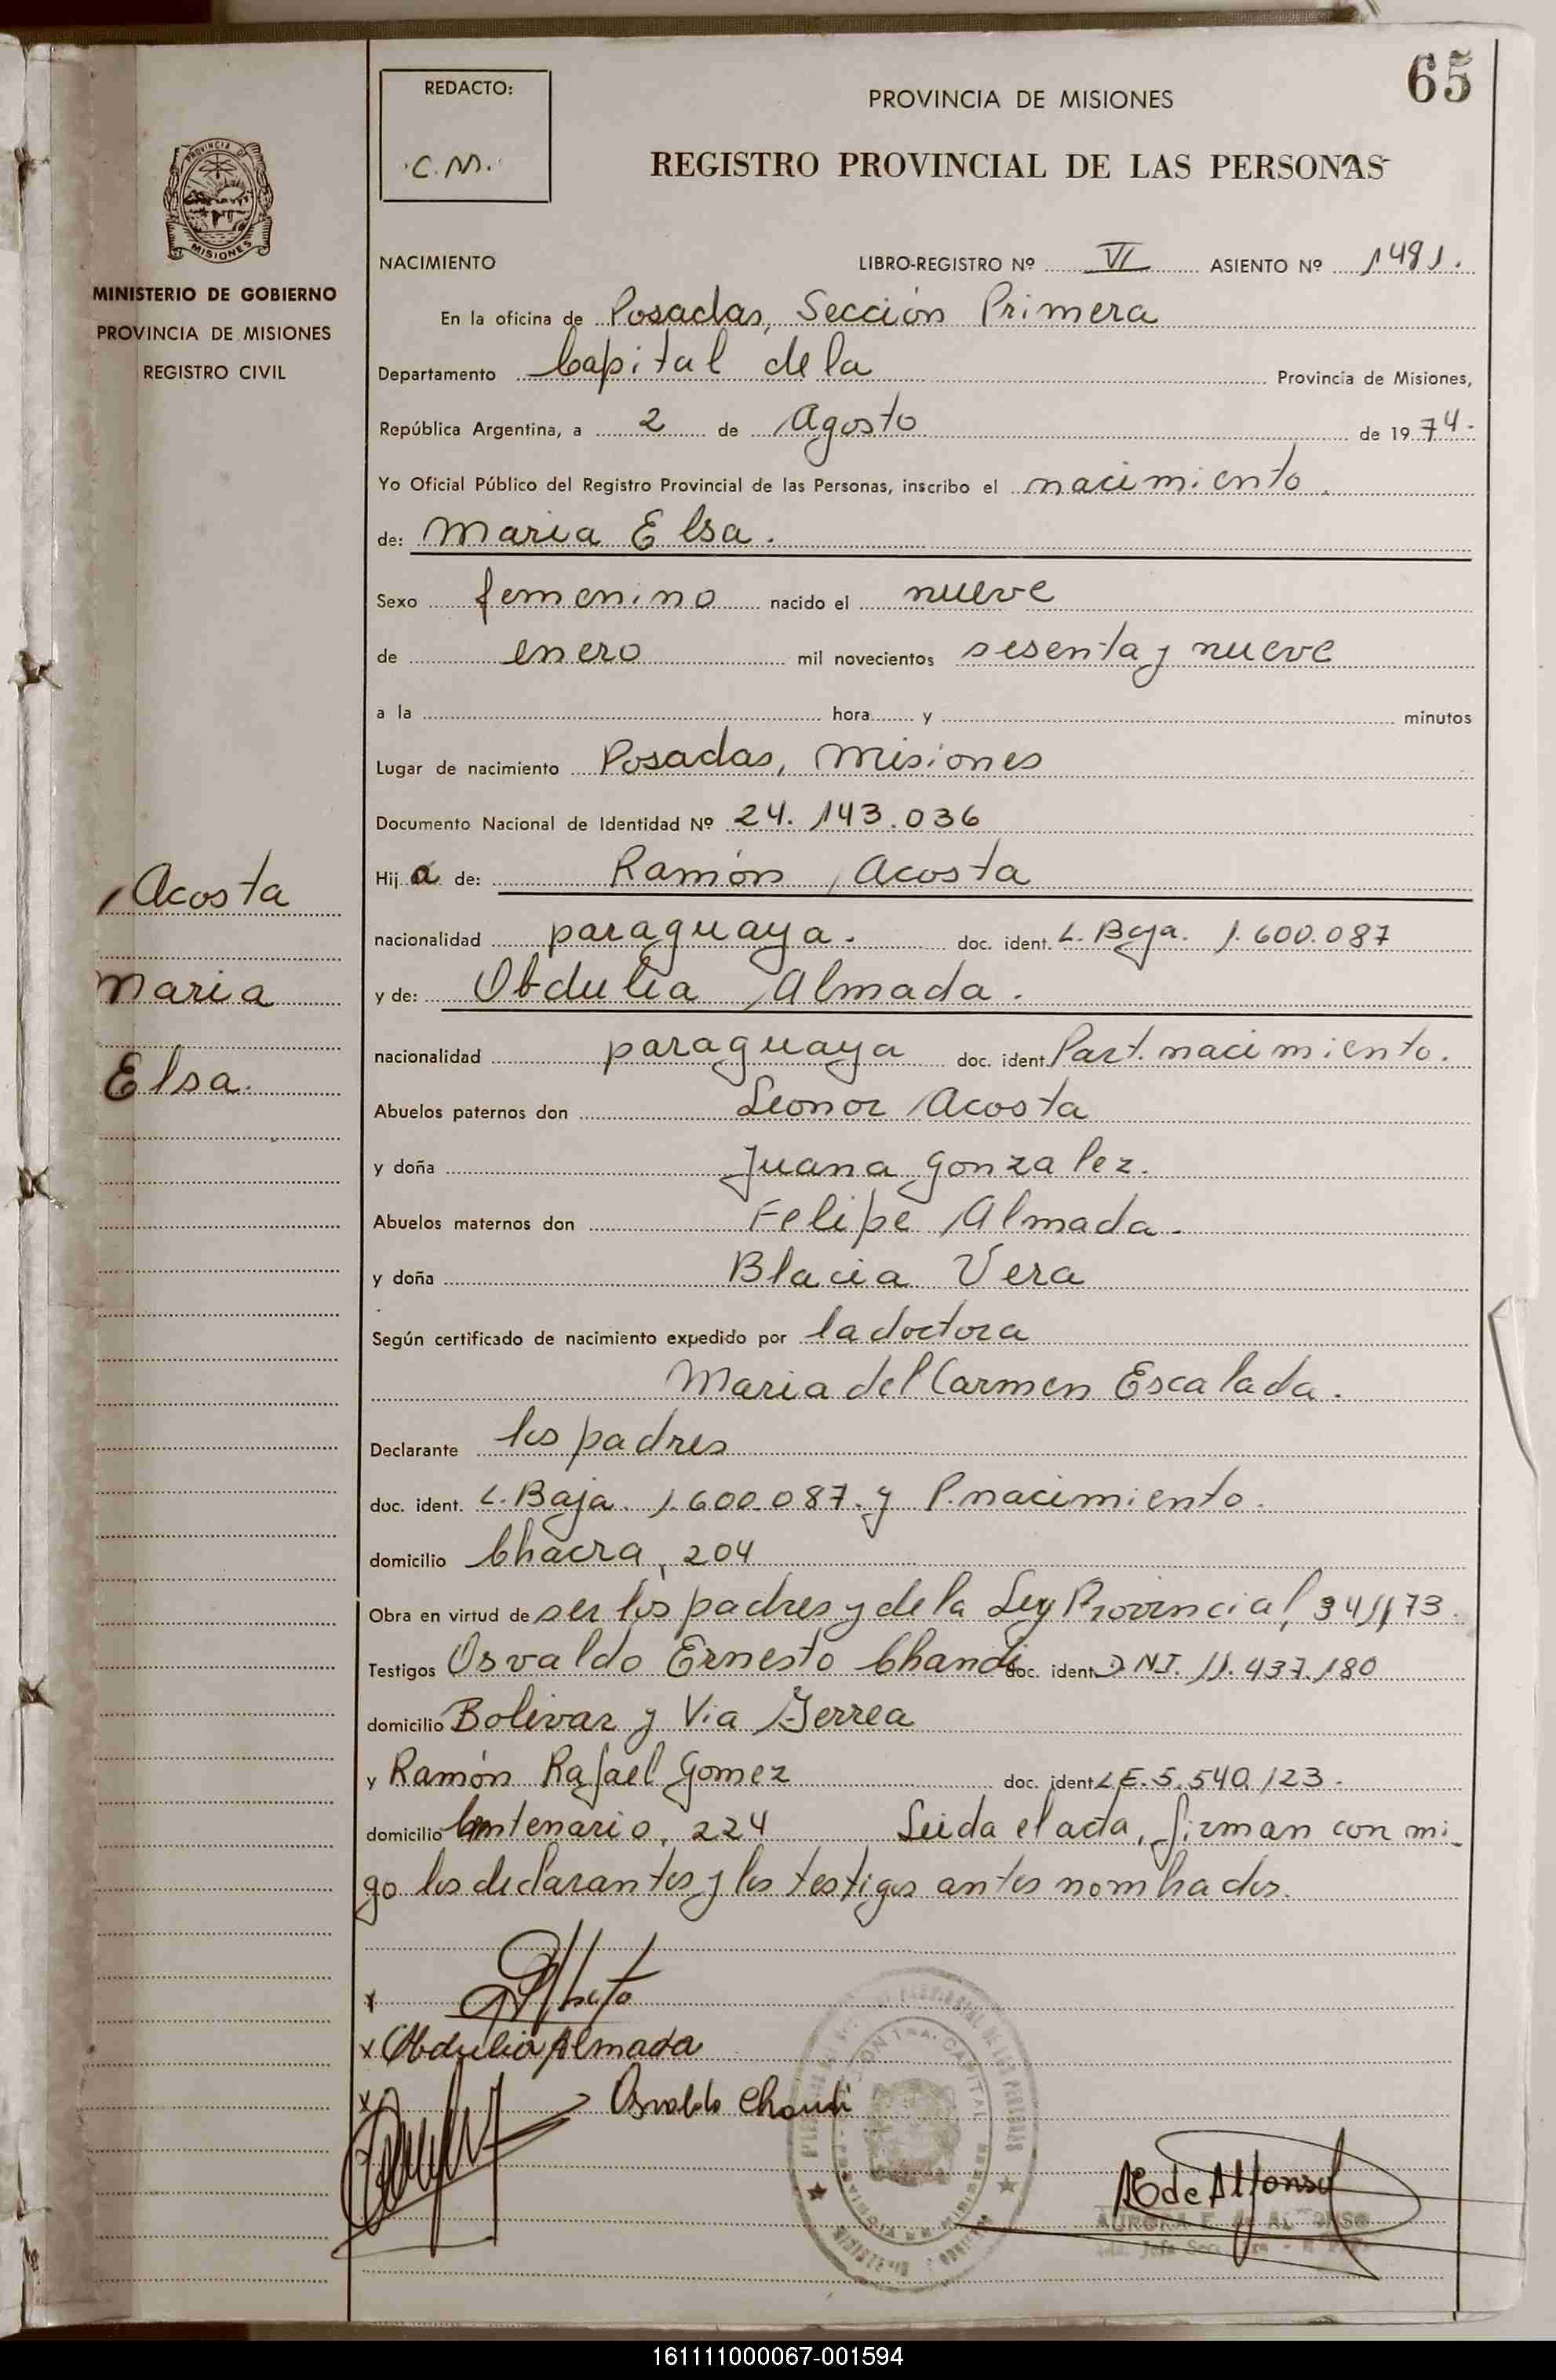 65
REDACTO:
C. M.
PROVINCIA DE MISIONES
REGISTRO PROVINCIAL DE LAS PERSONAS
PROVINCIA DE
MISIONES
MINISTERIO DE GOBIERNO
PROVINCIA DE MISIONES
REGISTRO CIVIL
NACIMIENTO LIBRO-REGISTRO Nº VI ASIENTO Nº 1481.
En la oficina de Posadas, Sección Primera
Departamento Capital de la Provincia de Misiones,
República Argentina, a 2 de Agosto de 1974.
Yo Oficial Público del Registro Provincial de las Personas, inscribo el nacimiento
de: Maria Elsa.
Sexo femenino nacido el nueve
de enero mil novecientos sesenta y nueve
a la hora y minutos
Lugar de nacimiento Posadas, Misiones
Documento Nacional de Identidad Nº 24.143.036
Hija de: Ramón Acosta
nacionalidad paraguaya. doc. ident. L. Baja. 1.600.087
y de: Obdulia Almada.
nacionalidad paraguaya doc. ident. Part. nacimiento.
Abuelos paternos don Leonor Acosta
y doña Juana Gonzalez.
Abuelos maternos don Felipe Almada.
y doña Blacia Vera
Según certificado de nacimiento expedido por la doctora
Maria del Carmen Escalada.
Declarante los padres
doc. ident. L. Baja. 1.600.087. y P. nacimiento.
domicilio Chacra, 204
Obra en virtud de ser los padres y de la Ley Provincial
Testigos Osvaldo Ernesto Chandi doc. ident. D.N.I. 11.437.180
domicilio Bolivar y Via Ferrea
y Ramón Rafael Gomez doc. ident. L.E. 5.540.123.
domicilio Centenario, 224 Leida el acta, firman con mi-
go los declarantes y los testigos antes nombrados.
Acosta
Maria
Elsa.
x
x Obdulia Almada
x Osvaldo Chandi
AE de Alfonso
AURORA E. de ALFONSO
161111000067-001594